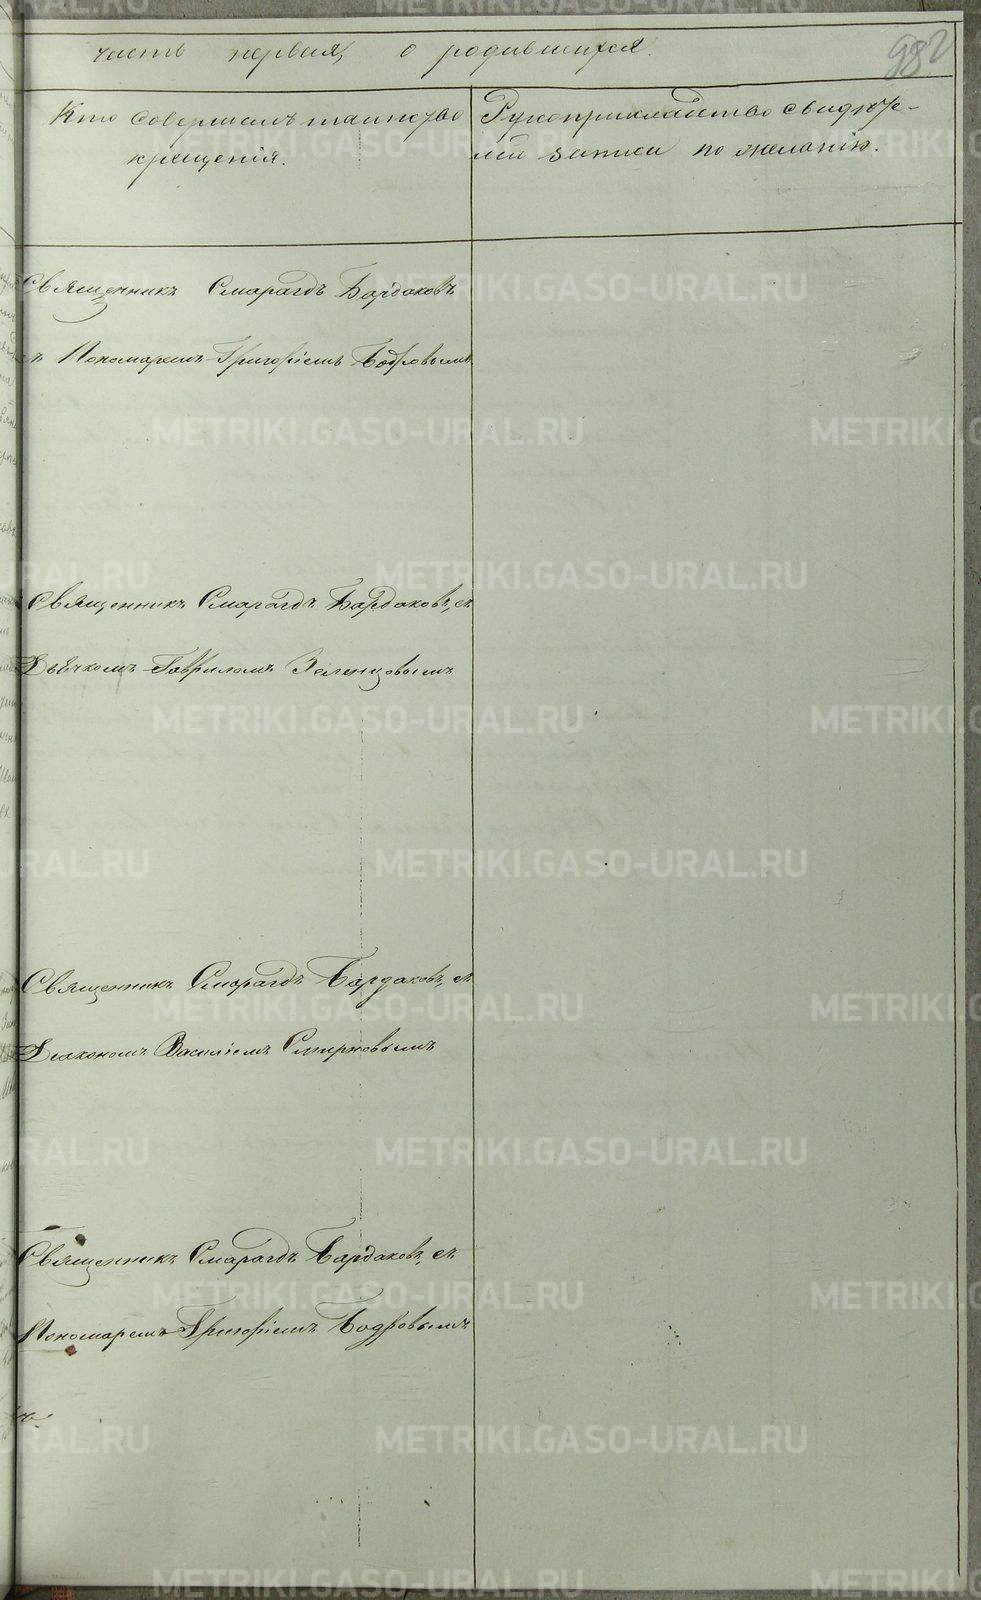 часть первая, о родившихся.
982
Кто совершалъ таинство
крещенія.
Рукоприкладство свидѣте-
лей записи по желанію.
Священникъ Смарагдъ Бардаковъ
съ Пономаремъ Григоріемъ Бодровымъ
Священникъ Смарагдъ Бардаковъ, съ
Дьячкомъ Гавриломъ Зеленцовымъ
Священникъ Смарагдъ Бардаковъ, съ
Діакономъ Василіемъ Смирновымъ
Священникъ Смарагдъ Бардаковъ, съ
Пономаремъ Григоріемъ Бодровымъ
METRIKI.GASO-URAL.RU